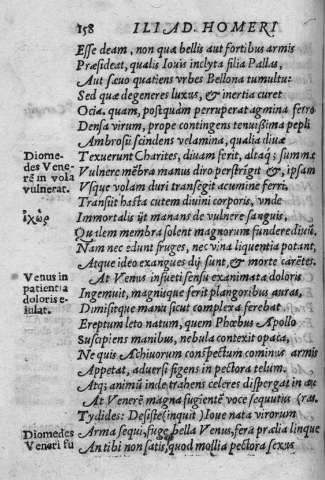 158 ILIAD. HOMERI
Esse deam, non quæ bellis aut fortibus armis
Præsideat, qualis Iouis inclyta filia Pallas,
Aut sæuo quatiens vrbes Bellona tumultu:
Sed quæ degeneres luxus, & inertia curet
Ocia. quam, postquàm perruperat agmina ferro
Densa virum, prope contingens tenuissima pepli
Ambrosii scindens velamina, qualia diuæ
Diome-
des Vene-
rẽ in vola
vulnerat.
Texuerunt Charites, diuam ferit, altaq; summæ
Vulnere mẽbra manus diro perstrigit & ipsam
Vsque volam duri transegit acumine ferri,
ὁ
ἰχὼρ
Transiit hasta cutem diuini corporis, vnde
Immortalis iit manans de vulnere sanguis,
Qualem membra solent magnorum fundere diuũ,
Nam nec edunt fruges, nec vina liquentia potant,
Atque ideo exangues dij sunt, & morte carẽtes.
Venus in
patientia
doloris e-
iulat.
At Venus insueti sensu exanimata doloris
Ingemuit, magnisque ferit plangoribus auras,
Dimisitque manu sicut complexa ferebat
Ereptum leto natum, quem Phœbus Apollo
Suscipiens manibus, nebula contexit opaca,
Ne quis Achiuorum conspectum cominus armis
Appetat, aduersi figens in pectora telum.
Atq; animũ inde trahens celeres dispergat in au
At Venerẽ magna fugientẽ voce sequutus (ras.
Tydides: Desiste (inquit) Ioue nata virorum
Diomedes
Veneri su
Arma sequi, fuge bella Venus, fera prælia linque
An tibi non satis, quod mollia pectora sexus